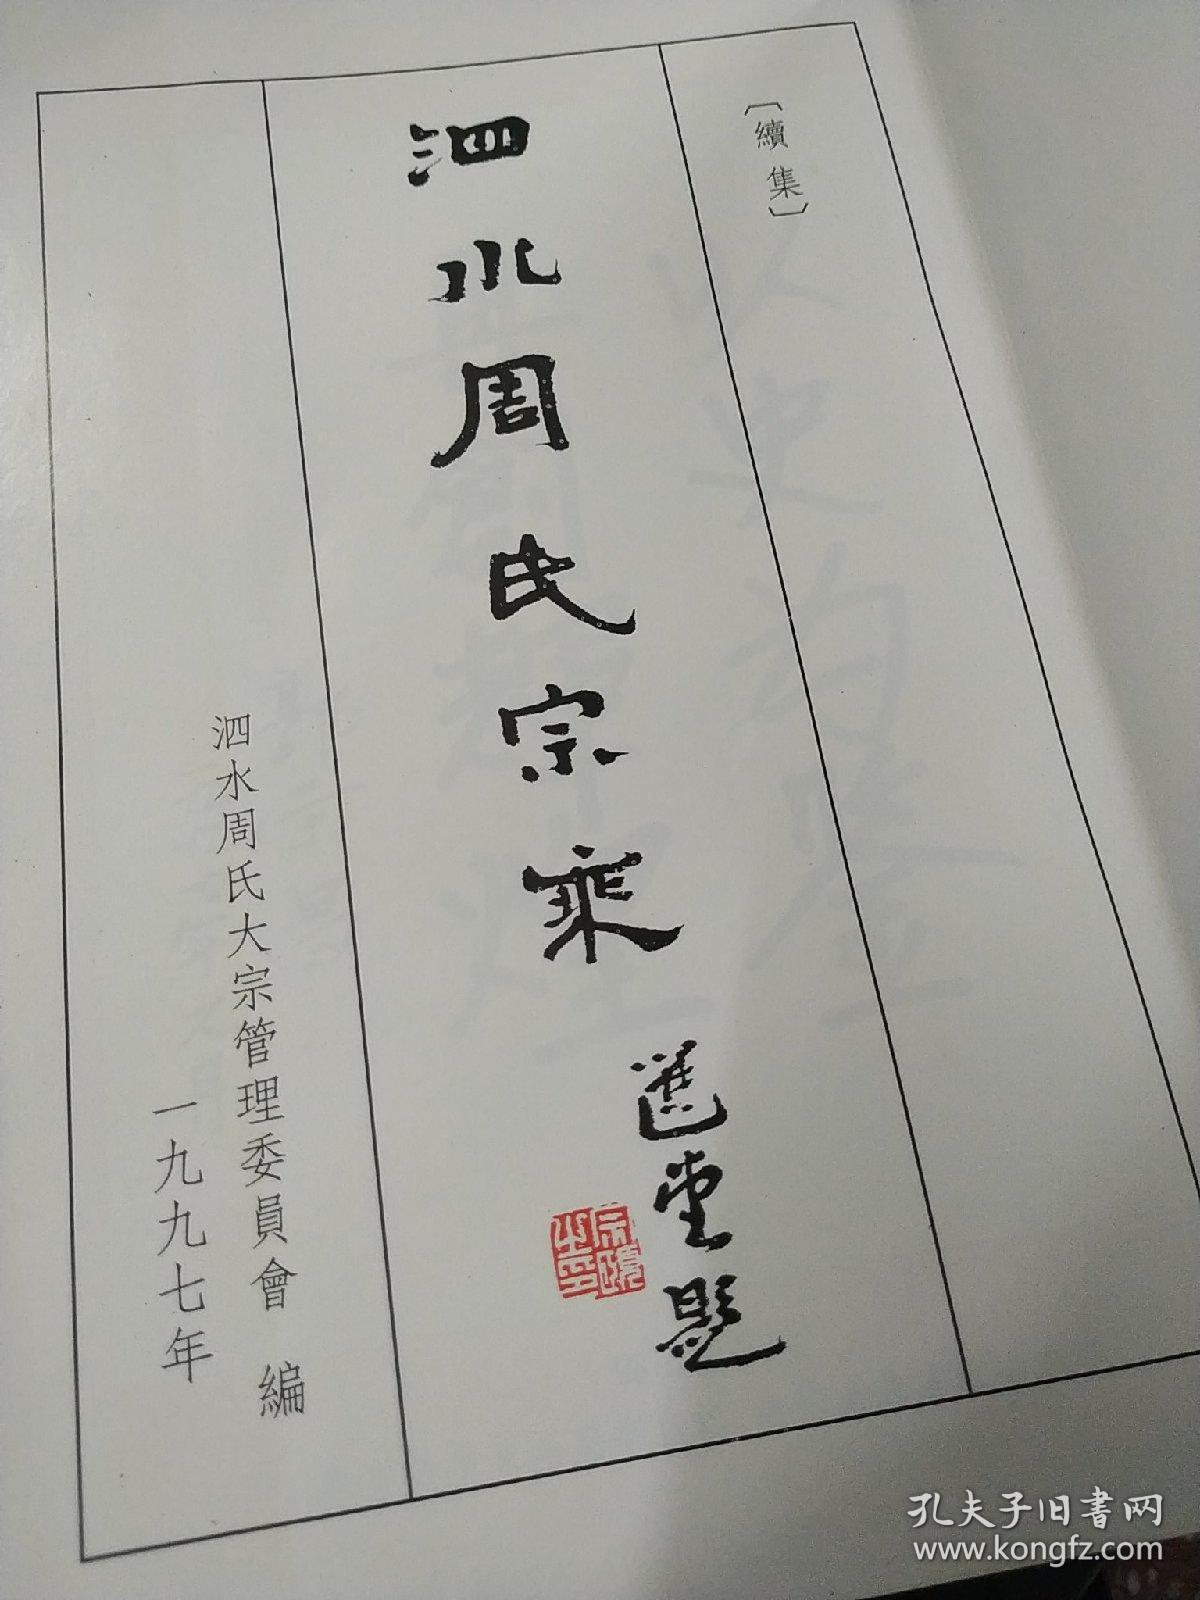 〔續集〕
泗水周氏宗乘
選堂題
泗水周氏大宗管理委員會 編
一九九七年
孔夫子旧书网
www.kongfz.com